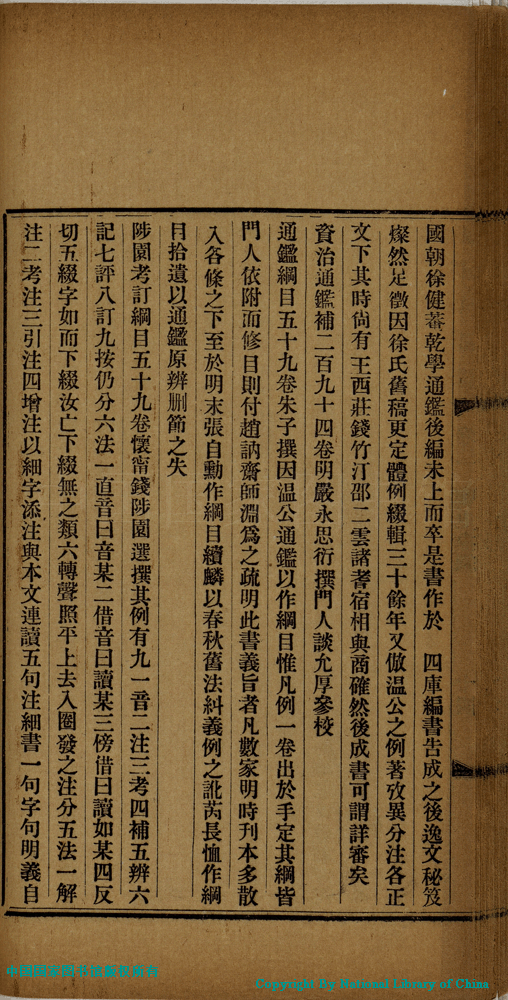 國朝徐健菴乾學通鑑後編未上而卒是書作於　四庫編書告成之後逸文秘笈
燦然足徵因徐氏舊稿更定體例綴輯三十餘年又倣温公之例著攷異分注各正
文下其時尙有王西莊錢竹汀邵二雲諸耆宿相與商確然後成書可謂詳審矣
資治通鑑補二百九十四卷明嚴永思衍撰門人談允厚參校
通鑑綱目五十九卷朱子撰因温公通鑑以作綱目惟凡例一卷出於手定其綱皆
門人依附而修目則付趙訥齋師淵爲之疏明此書義旨者凡數家明時刊本多散
入各條之下至於明末張自勳作綱目續麟以春秋舊法糾義例之訛芮長恤作綱
目拾遺以通鑑原辨删節之失
陟園考訂綱目五十九卷懷甯錢陟園選撰其例有九一音二注三考四補五辨六
記七評八訂九按仍分六法一直音曰音某二借音曰讀某三傍借曰讀如某四反
切五綴字如而下綴汝亡下綴無之類六轉聲照平上去入圈發之注分五法一解
注二考注三引注四增注以細字添注與本文連讀五句注細書一句字句明義自
中国国家图书馆版权所有
Copyright by National Library of China